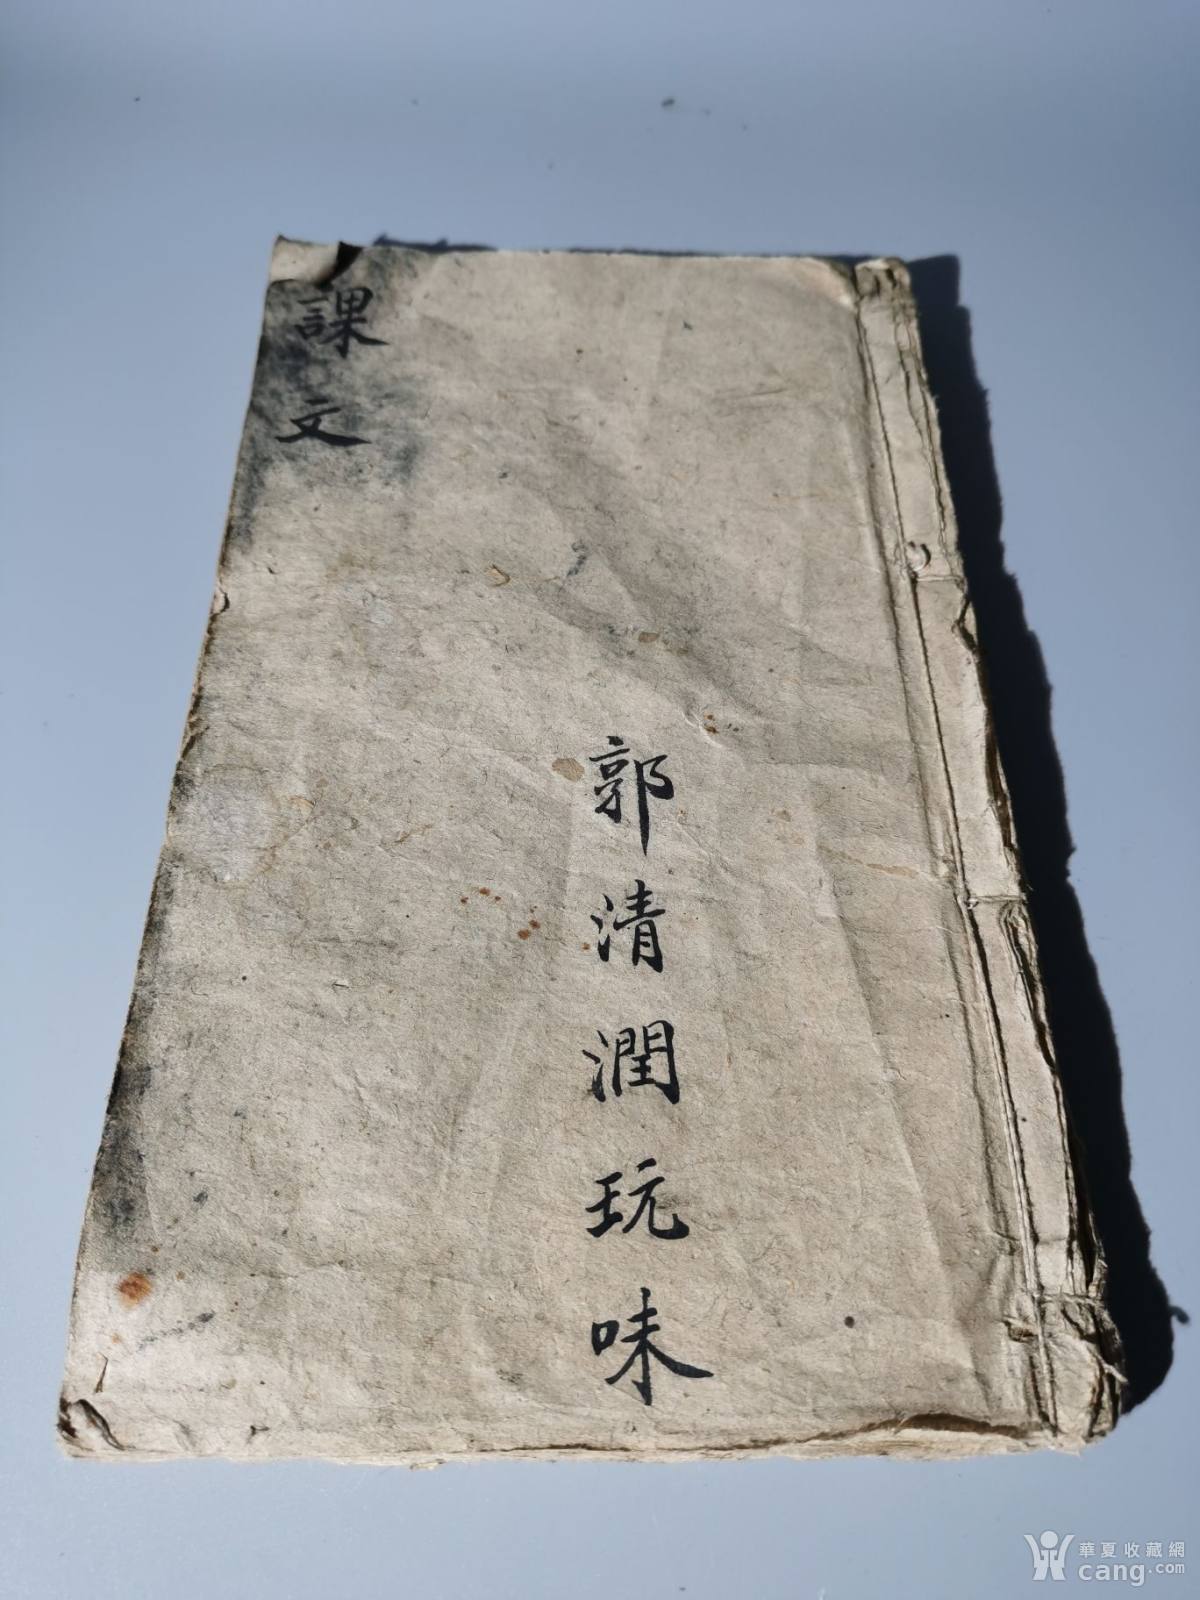 課文
郭清潤玩味
華夏收藏網
cang.com